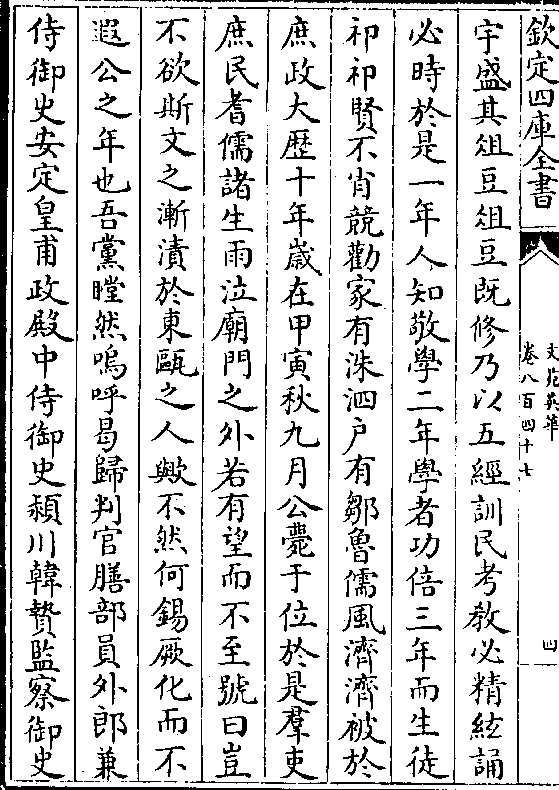 欽定四庫全書
文苑英華
卷八百四十七
四
宇盛其俎豆俎豆既修乃以五經訓民考教必精絃誦
必時於是一年人知敬學二年學者功倍三年而生徒
祁祁賢不肖競勸家有洙泗户有鄒魯儒風濟濟被於
庶政大歴十年嵗在甲寅秋九月公薨于位於是羣吏
庶民耆儒諸生雨泣廟門之外若有望而不至號曰豈
不欲斯文之漸漬於東甌之人歟不然何錫厥化而不
遐公之年也吾黨瞠然嗚呼曷歸判官膳部員外郎兼
侍御史安定皇甫政殿中侍御史潁川韓贄監察御史